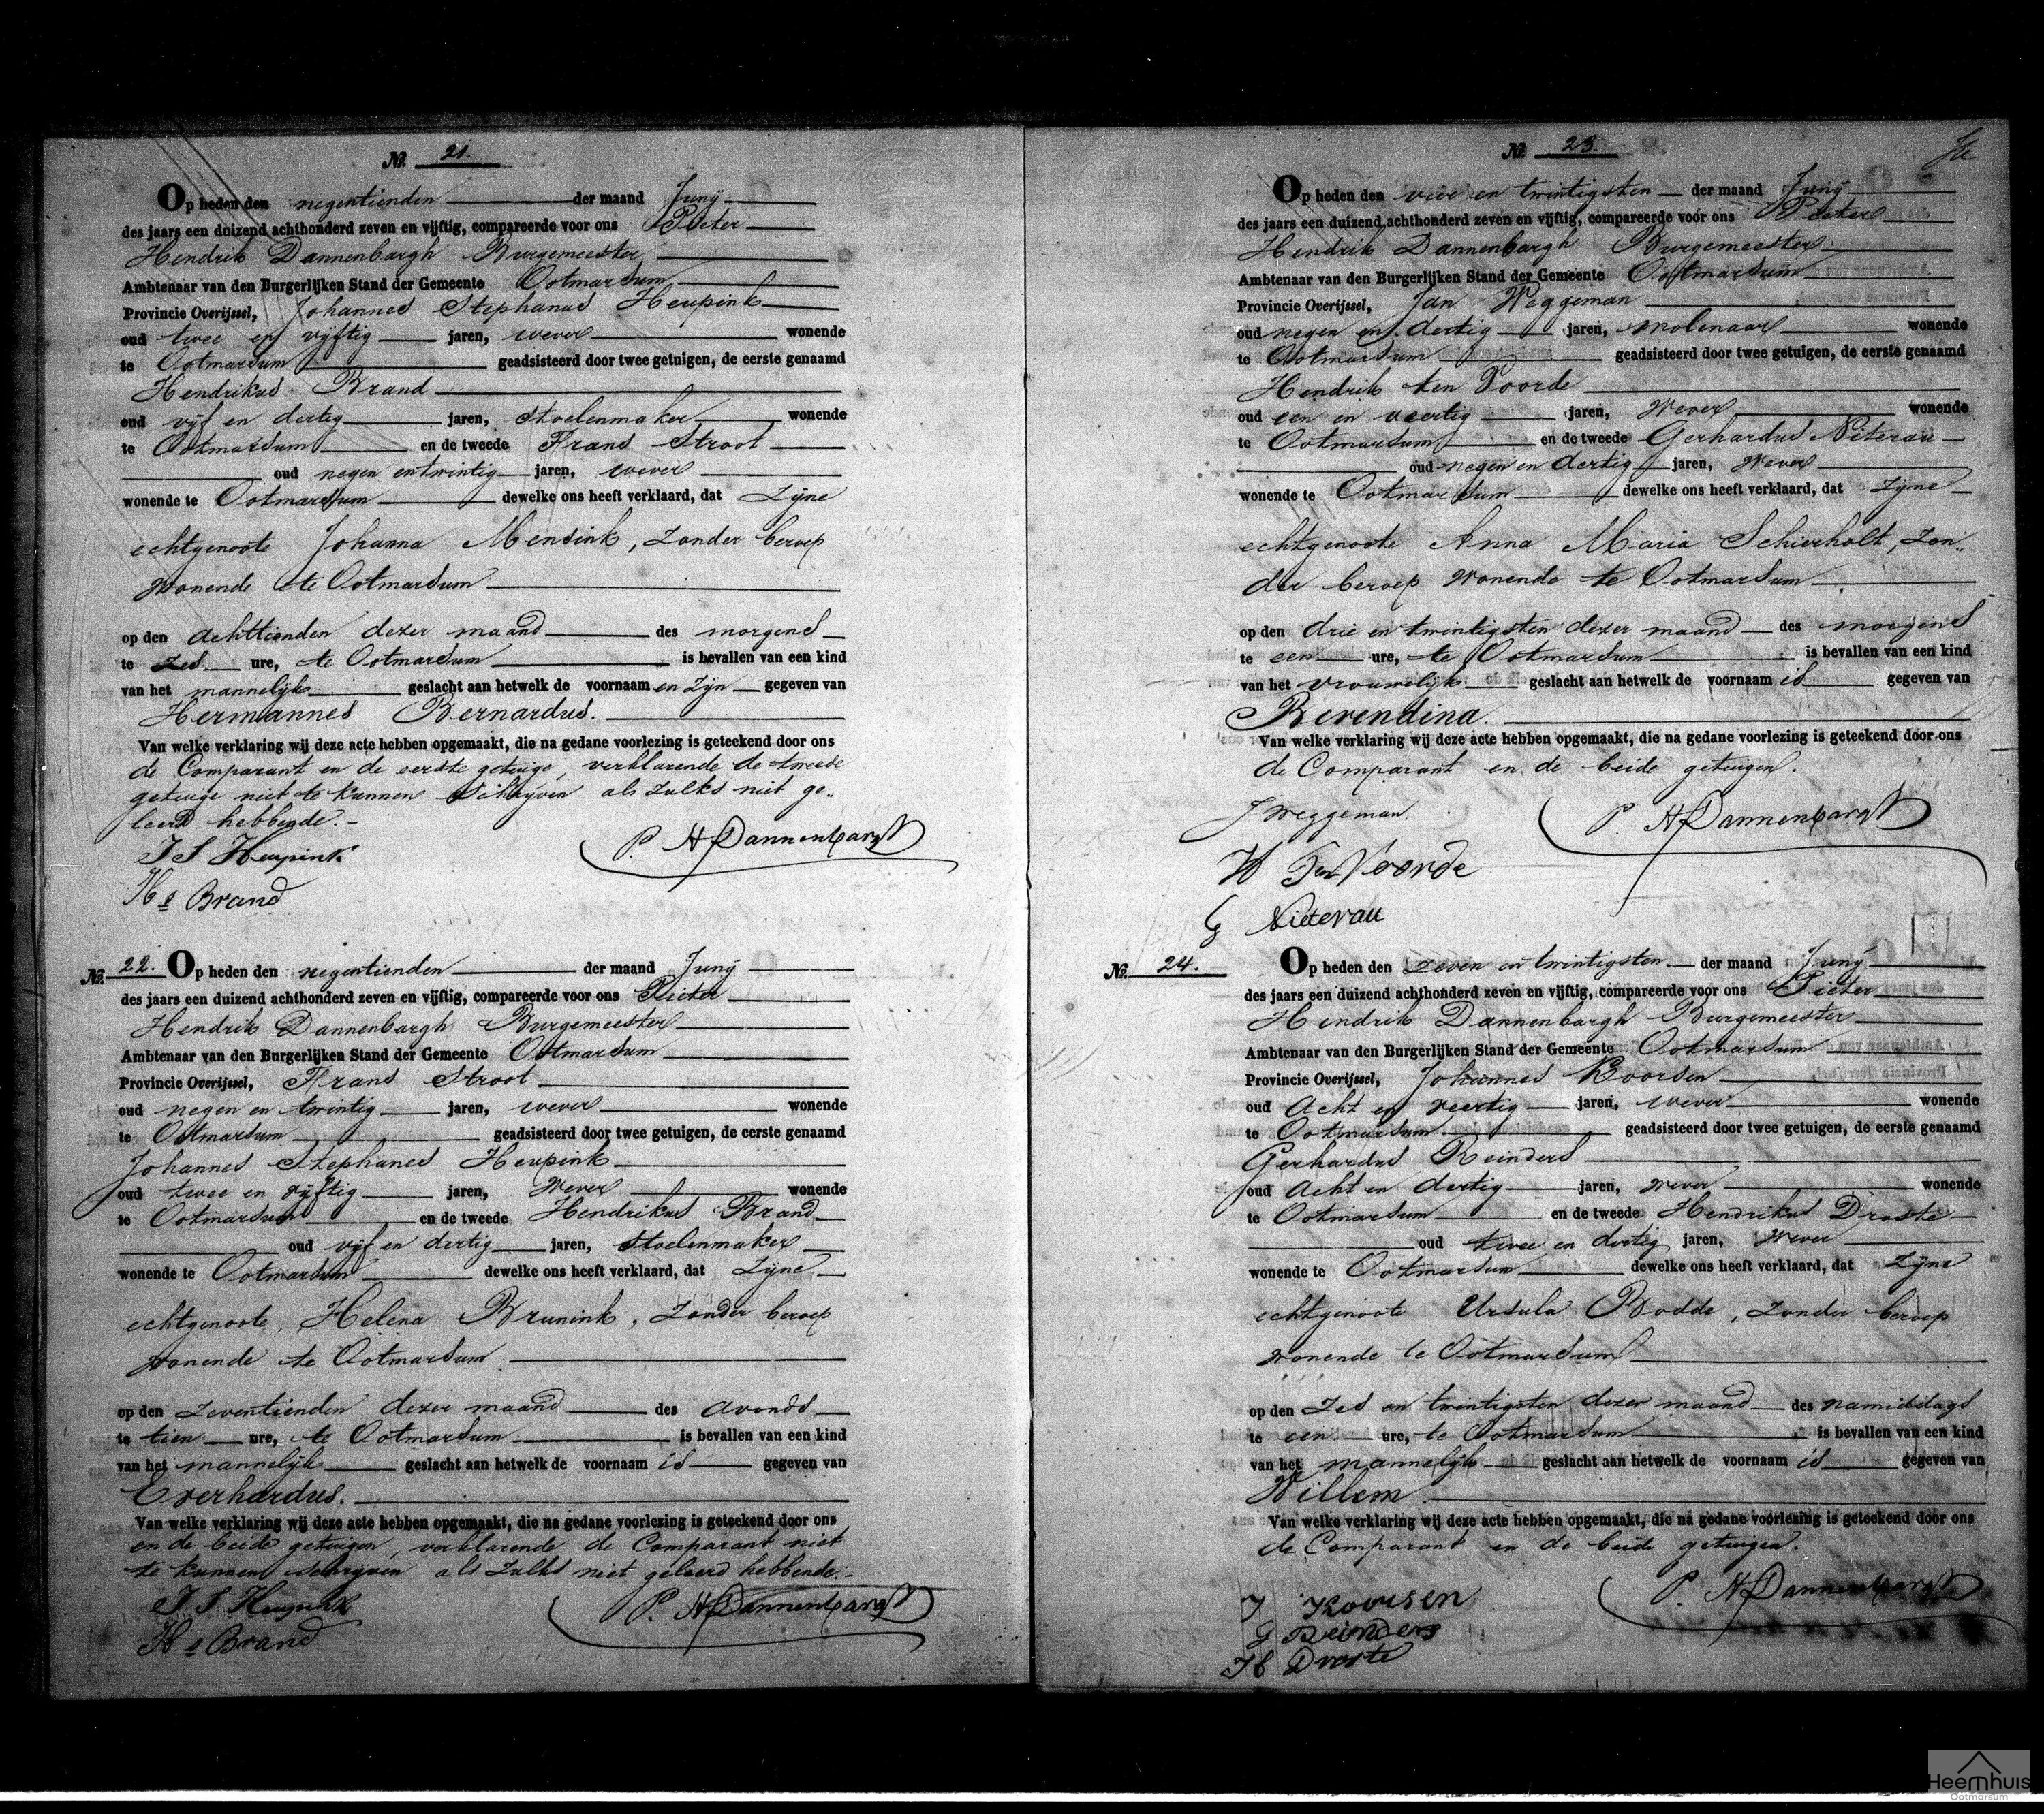 No. 21.
Op heden den negentienden der maand Junij
des jaars een duizend achthonderd zeven en vijftig, compareerde voor ons Pieter
Hendrik Dannenbargh Burgemeester
Ambtenaar van den Burgerlijken Stand der Gemeente Ootmarsum
Provincie Overijssel, Johannes Stephanus Heupink
oud twee en vijftig jaren, wever wonende
te Ootmarsum geadsisteerd door twee getuigen, de eerste genaamd
Hendrikus Brand
oud vijf en dertig jaren, stoelenmaker wonende
te Ootmarsum en de tweede Frans Stroot
oud negen en twintig jaren, wever
wonende te Ootmarsum dewelke ons heeft verklaard, dat zijne
echtgenoote Johanna Mensink, zonder beroep
wonende te Ootmarsum
op den achttienden dezer maand des morgens
te zes ure, te Ootmarsum is bevallen van een kind
van het mannelijk geslacht aan hetwelk de voornaam en zijn gegeven van
Hermannes Bernardus.
Van welke verklaring wij deze acte hebben opgemaakt, die na gedane voorlezing is geteekend door ons
de Comparant en de eerste getuige, verklarende de tweede
getuige niet te kunnen schrijven als zulks niet ge„
leerd hebbende.-
J S Heupink P. H Dannenbargh
Hs Brand
No. 22. Op heden den negentienden der maand Junij
des jaars een duizend achthonderd zeven en vijftig, compareerde voor ons Pieter
Hendrik Dannenbargh Burgemeester
Ambtenaar van den Burgerlijken Stand der Gemeente Ootmarsum
Provincie Overijssel, Frans Stroot
oud negen en twintig jaren, wever wonende
te Ootmarsum geadsisteerd door twee getuigen, de eerste genaamd
Johannes Stephanes Heupink
oud twee en vijftig jaren, wever wonende
te Ootmarsum en de tweede Hendrikus Brand
oud vijf en dertig jaren, stoelenmaker
wonende te Ootmarsum dewelke ons heeft verklaard, dat zijne
echtgenoote, Helena Brunink, zonder beroep
wonende te Ootmarsum
op den zeventienden dezer maand des avonds
te tien ure, te Ootmarsum is bevallen van een kind
van het mannelijk geslacht aan hetwelk de voornaam is gegeven van
Everhardus.
Van welke verklaring wij deze acte hebben opgemaakt, die na gedane voorlezing is geteekend door ons
en de beide getuigen, verklarende de Comparant niet
te kunnen schrijven als zulks niet geleerd hebbende.-
J S Heupink P. H Dannenbargh
Hs Brand
No. 23.
Op heden den vier en twintigsten der maand Junij
des jaars een duizend achthonderd zeven en vijftig, compareerde voor ons Pieter
Hendrik Dannenbargh Burgemeester
Ambtenaar van den Burgerlijken Stand der Gemeente Ootmarsum
Provincie Overijssel, Jan Weggeman
oud negen en dertig jaren, molenaar wonende
te Ootmarsum geadsisteerd door twee getuigen, de eerste genaamd
Hendrik ten Voorde
oud een en veertig jaren, Wever wonende
te Ootmarsum en de tweede Gerhardus Niterau
oud negen en dertig jaren, Wever
wonende te Ootmarsum dewelke ons heeft verklaard, dat zijne
echtgenoote Anna Maria Schierholt, zon„
der beroep wonende te Ootmarsum
op den drie en twintigsten dezer maand des morgens
te een ure, te Ootmarsum is bevallen van een kind
van het vrouwelijk geslacht aan hetwelk de voornaam is gegeven van
Berendina.
Van welke verklaring wij deze acte hebben opgemaakt, die na gedane voorlezing is geteekend door ons
de Comparant en de beide getuigen.
J Weggeman. P. H Dannenbargh
H Ten Voorde
G Nieterau
No. 24. Op heden den zeven en twintigsten. der maand Junij
des jaars een duizend achthonderd zeven en vijftig, compareerde voor ons Pieter
Hendrik Dannenbargh Burgemeester
Ambtenaar van den Burgerlijken Stand der Gemeente Ootmarsum
Provincie Overijssel, Johannes Koorsen
oud Acht en veertig jaren, wever wonende
te Ootmarsum geadsisteerd door twee getuigen, de eerste genaamd
Gerhardus Reinders
oud Acht en dertig jaren, wever wonende
te Ootmarsum en de tweede Hendrikus Droste
oud twee en dertig jaren, Wever
wonende te Ootmarsum dewelke ons heeft verklaard, dat zijne
echtgenoote Ursula Bodde, zonder beroep
wonende te Ootmarsum
op den zes en twintigsten dezer maand des namiddags
te een ure, te Ootmarsum is bevallen van een kind
van het mannelijk geslacht aan hetwelk de voornaam is gegeven van
Willem.
Van welke verklaring wij deze acte hebben opgemaakt, die na gedane voorlezing is geteekend door ons
de Comparant en de beide getuigen.
J Koorsen P. H Dannenbargh
G Reinders
H Droste
Heemhuis
Ootmarsum